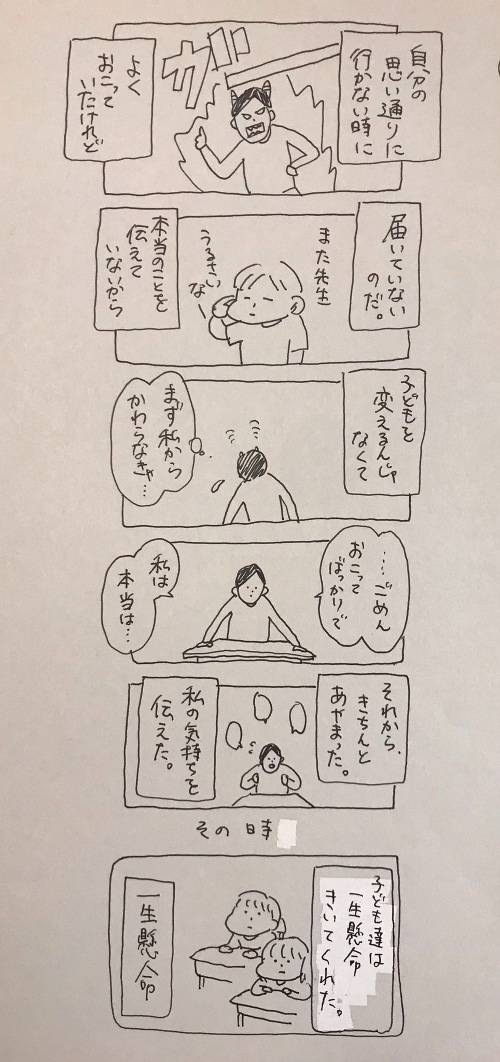 自分の
思い通りに
行かない時に
ガ
よく
おこって
いたけれど
届いていない
のだ。
また先生
うるさい
なー
本当のことを
伝えて
いないから
子どもを
変えるんじゃ
なくて
まず私から
かわらなきゃ…
…ごめん
おこって
ばっかりで
私は
本当は…
それから、
きちんと
あやまった。
私の気持ちを
伝えた。
その時
子ども達は
一生懸命
きいてくれた。
一生懸命